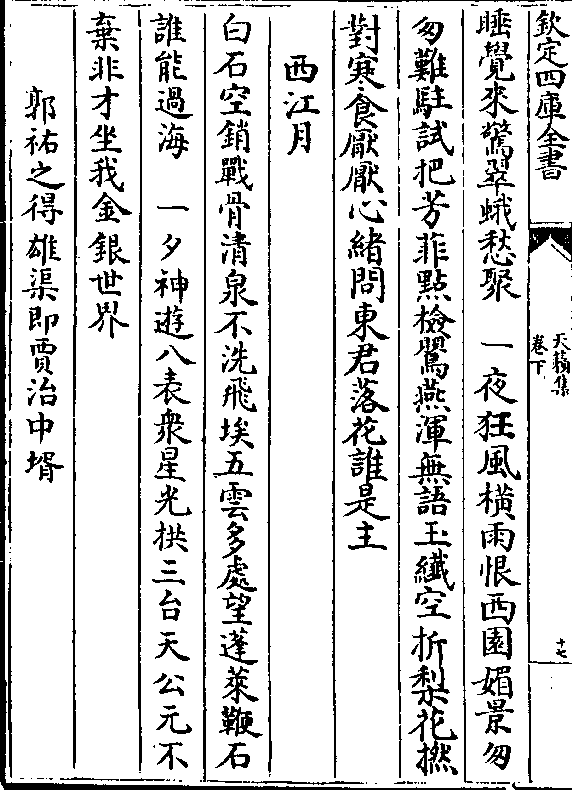 欽定四庫全書
天籟集
卷下
十七
睡覺來驚翠蛾愁聚　一夜狂風橫雨恨西園媚景匆
匆難駐試把芳菲點檢鸎燕渾無語玉纖空折梨花撚
對寒食厭厭心緒問東君落花誰是主
西江月
白石空銷戰骨清泉不洗飛埃五雲多處望蓬萊鞭石
誰能過海　一夕神遊八表衆星光拱三台天公元不
棄非才坐我金銀世界
郭祐之得雄渠即賈治中壻